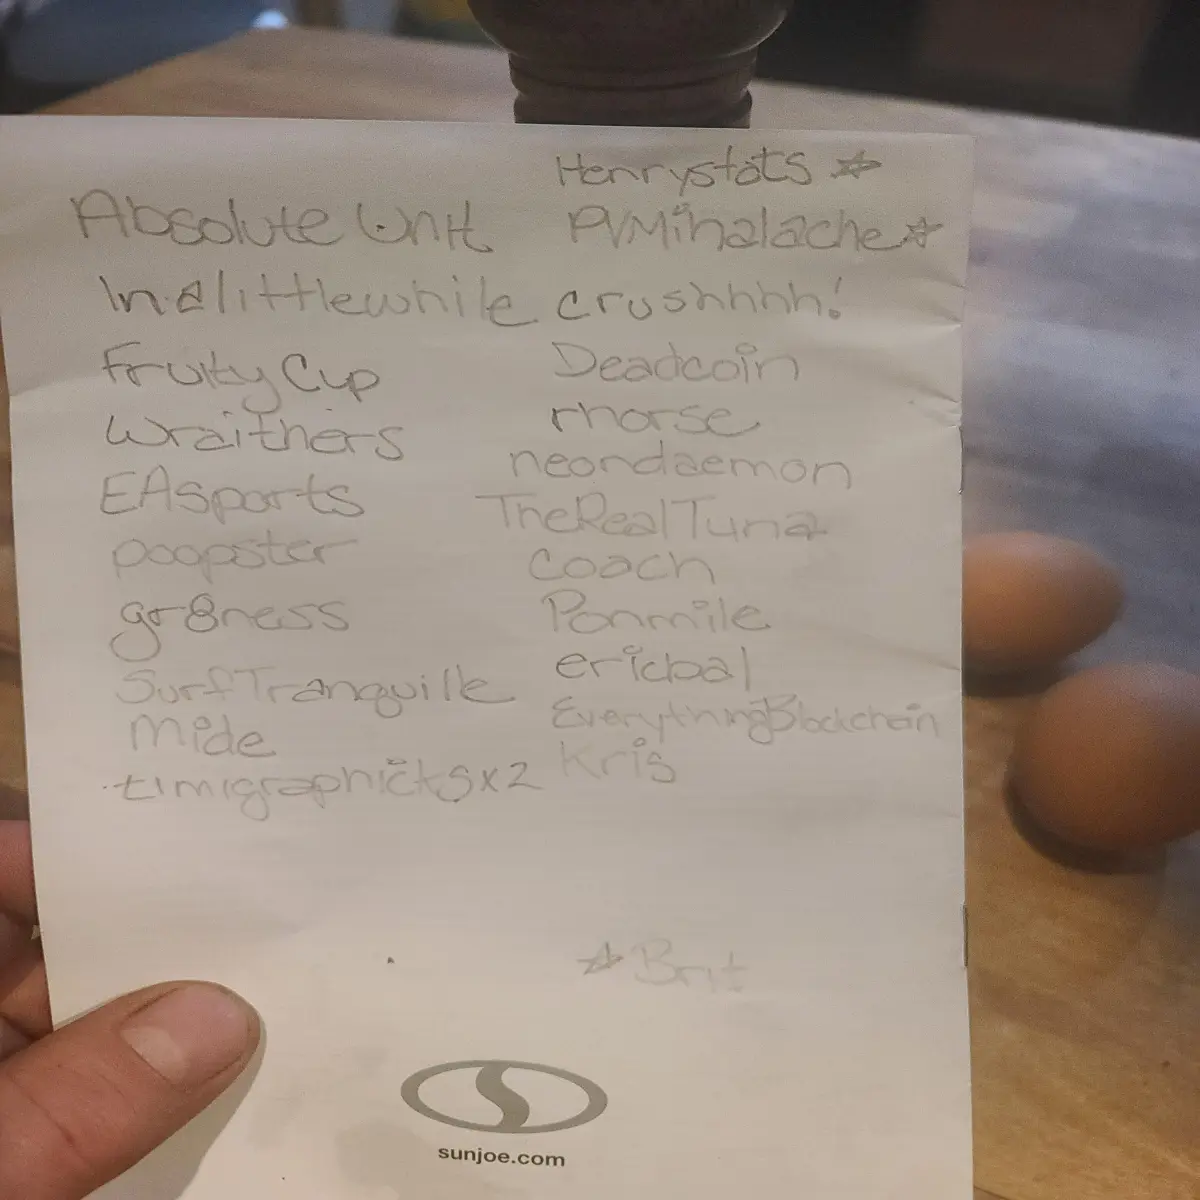 Absolute Unit
Inalittlewhile
Fruity Cup
Wraithers
EASports
poopster
gr8ness
SurfTranquille
Mide
timigraphicts x2
Henrystats ☆
PVMihalache ☆
crushhhh!
Deadcoin
rhorse
neondaemon
TheRealTuna
Coach
Ponmile
ericbal
EverythingBlockchain
Kris
☆ Brit
sunjoe.com